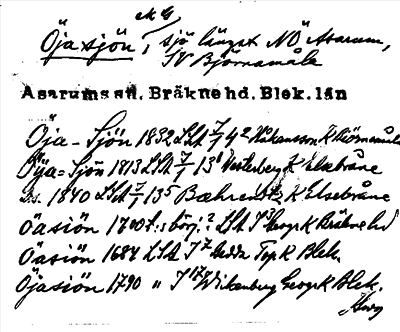 Öjasjön, sjö längst NÖ Asarum,
SV Björnamåla
Asarums sn. Bräkne hd. Blek. län
Öja-Sjön 1832 LSA 7/1 42 Håkansson K Björnamåla
Öija=Sjön 1813 LSA 7/1 13 Westerberg K Elsebråne
Ds. 1840 LSA 7/1 135 Bæhrendtz K Elsebråne
öasiön 1700 t:s börj.? LSA Geogr K Bräkne hd
Öasiön 1684 LSA Gedda Top K Blek.
Öjasiön 1790 " Wikenberg Geogr K Blek.